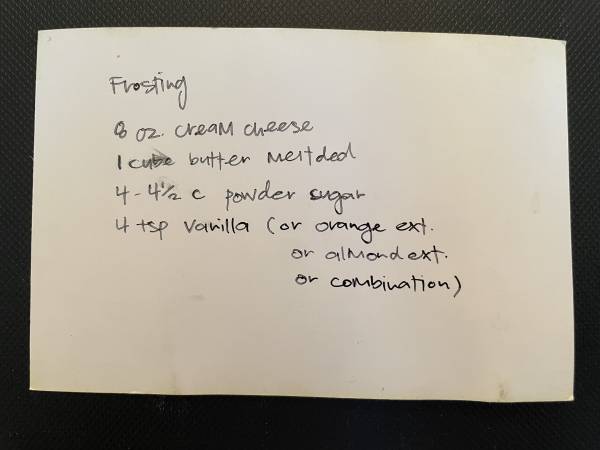 Frosting
8 oz. cream cheese
1 cube butter meltded
4 - 4 1/2 c powder sugar
4 tsp vanilla (or orange ext.
or almond ext.
or combination)